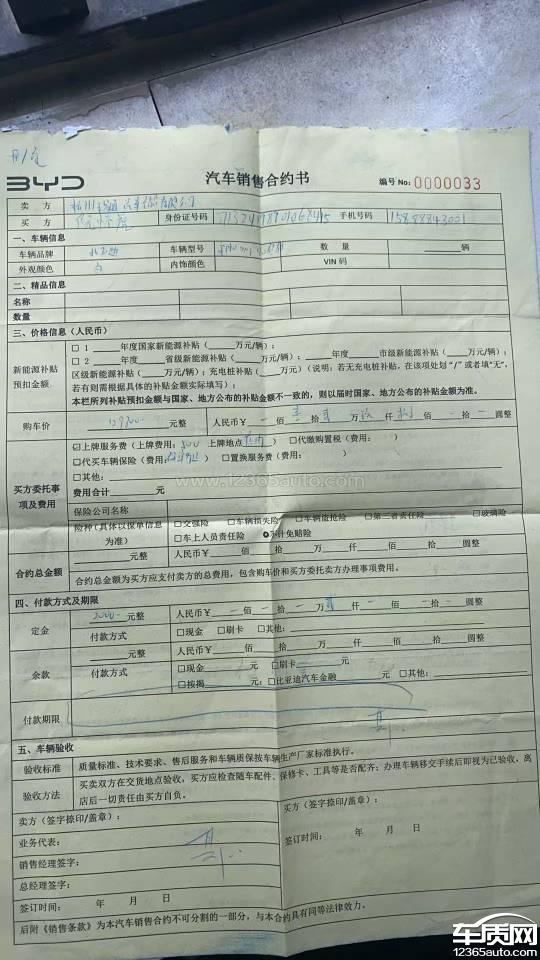 BYD 汽车销售合约书 编号 No: 0000033
卖 方
买 方 身份证号码 手机号码 15888843001
一、车辆信息
车辆品牌 车辆型号 数 量 辆
外观颜色 白 内饰颜色 VIN 码
二、精品信息
名称
数量
三、价格信息（人民币）
新能源补贴预扣金额
□ 1 ____年度国家新能源补贴（____万元/辆）；
□ 2 ____年度 省级新能源补贴（____万元/辆）；____年度 市级新能源补贴（____万元/辆）；
区级新能源补贴（____万元/辆）；充电桩补贴（____万元/辆）（说明：若无充电桩补贴，在该项处划“/”或者填“无”，
若有则需根据具体的补贴金额实际填写）；
本栏所列补贴预扣金额与国家、地方公布的补贴金额不一致的，则以届时国家、地方公布的补贴金额为准。
购车价 元整 人民币￥ 佰 壹 拾 贰 万 仟 佰 一 拾 一 圆整
买方委托事项及费用
☑上牌服务费（上牌费用： 上牌地点 ） □代缴购置税（费用： ）
□代买车辆保险（费用： ） □置换服务费（费用： ）
□其他：
费用合计____元
保险公司名称
险种（具体以保单信息为准） □交强险 □车辆损失险 □车辆盗抢险 □第三者责任险 □玻璃险
□车上人员责任险 不计免赔险
合约总金额 ____元整 人民币￥ 佰 拾 万 仟 佰 拾 圆整
合约总金额为买方应支付卖方的总费用，包含购车价和买方委托卖方办理事项费用。
四、付款方式及期限
定金 2000 元整 人民币￥ 一 佰 一 拾 一 万 贰 仟 一 佰 一 拾 一 圆整
付款方式 □现金 □刷卡 □其他：
余款 ____元整 人民币￥ 佰 拾 万 仟 佰 拾 圆整
付款方式 □现金____元 □刷卡____元
□按揭____元；□比亚迪汽车金融____元 □其他：
付款期限
五、车辆验收
验收标准 质量标准、技术要求、售后服务和车辆质保按车辆生产厂家标准执行。
验收方法 买卖双方在交货地点验收，买方应检查随车配件、保修卡、工具等是否配齐；办理车辆移交手续后即视为已验收，离
店后一切责任由买方自负。
卖方（签字捺印/盖章）： 买方（签字捺印/盖章）：
业务代表： 签订时间： 年 月 日
销售经理签字：
总经理签字：
签订时间： 年 月 日
后附《销售条款》为本汽车销售合约不可分割的一部分，与本合约具有同等法律效力。
www.12365auto.com
车质网
12365auto.com